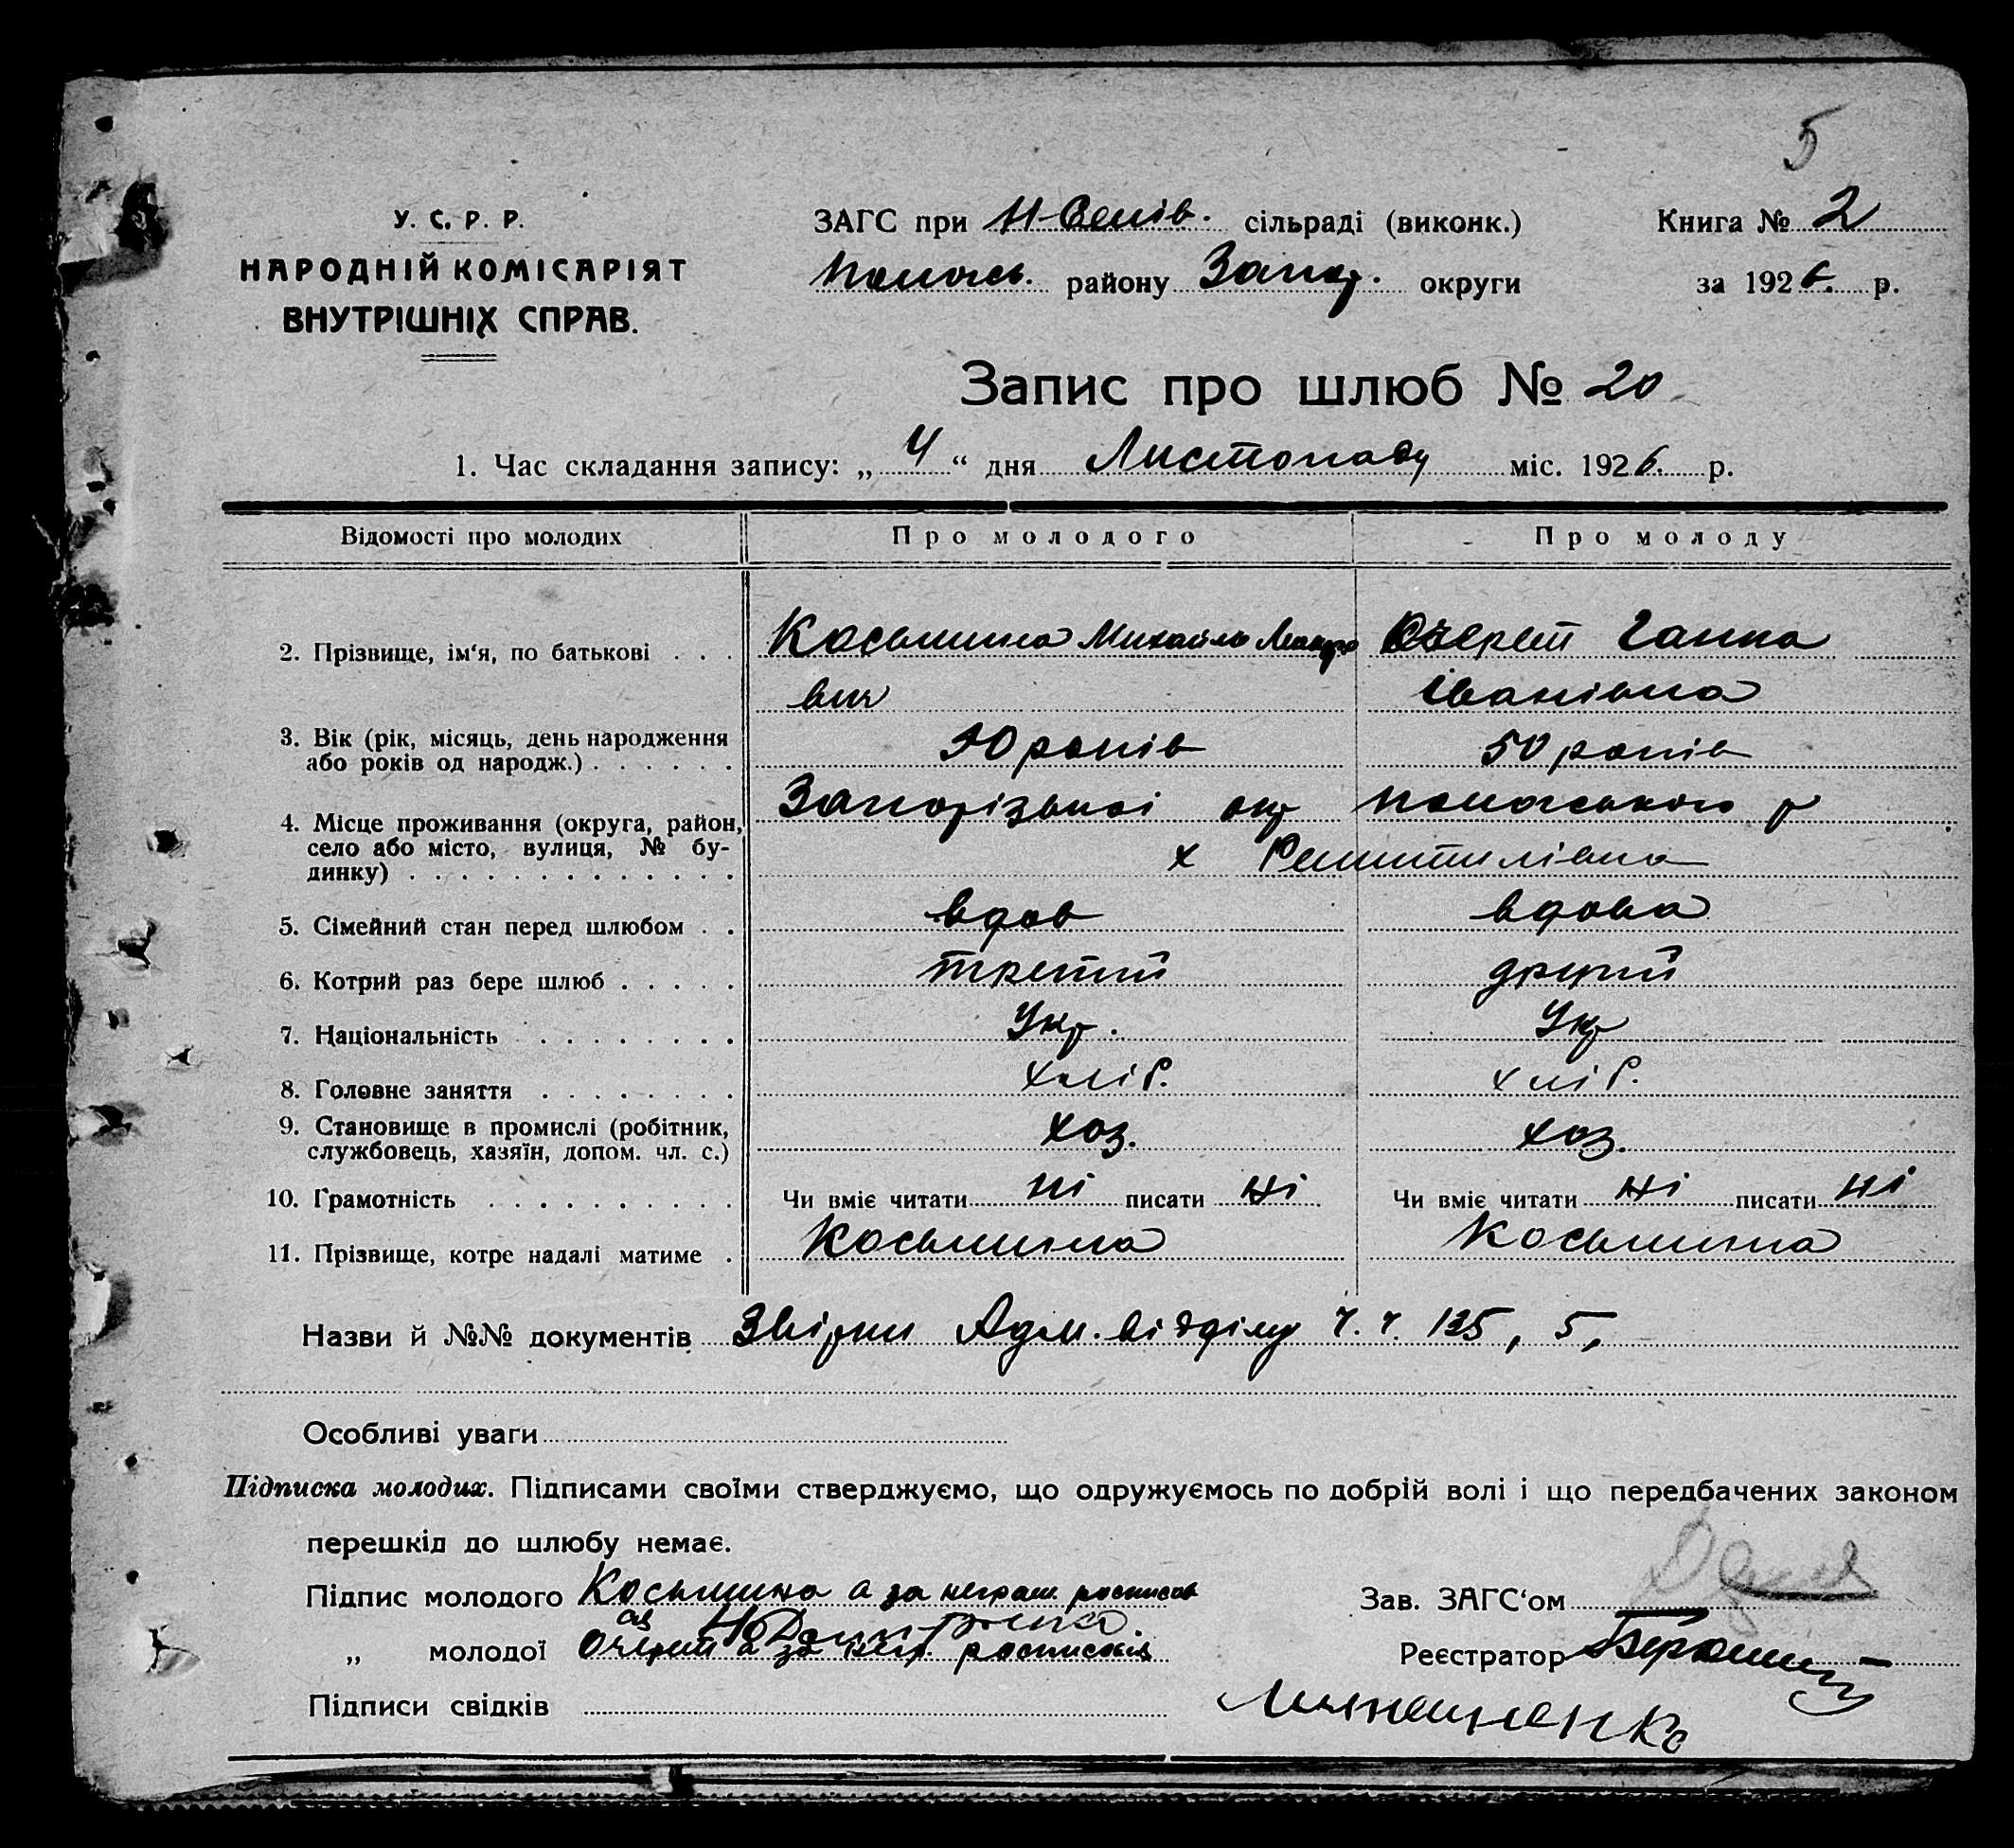 5
У. С. Р. Р.
НАРОДНІЙ КОМІСАРІЯТ
ВНУТРІШНІХ СПРАВ.
ЗАГС при сільраді (виконк.)
району Запор. округи
Книга № 2
за 1926 р.
Запис про шлюб № 20
1. Час складання запису: „ 4 “ дня Листопаду міс. 1926 р.
Відомості про молодих Про молодого Про молоду
2. Прізвище, ім'я, по батькові . . . Косьмина Михайло Ганна
вич Іванівна
3. Вік (рік, місяць, день народження
або років од народж.) . . . . . . років 50 років
4. Місце проживання (округа, район,
село або місто, вулиця, № бу-
динку) . . . . . . . . . . . . . Запорізької окр р
х
5. Сімейний стан перед шлюбом . . вдов вдова
6. Котрий раз бере шлюб . . . . . третий другий
7. Національність . . . . . . . . Укр. Укр
8. Головне заняття . . . . . . . . хліб. хліб.
9. Становище в промислі (робітник,
службовець, хазяїн, допом. чл. с.) хоз. хоз.
10. Грамотність . . . . . . . . . . Чи вміє читати ні писати ні Чи вміє читати ні писати ні
11. Прізвище, котре надалі матиме . Косьмина Косьмина
Назви й №№ документів Адм. відділу ч. ч. 135, 5,
Особливі уваги
Підписка молодих. Підписами своїми стверджуємо, що одружуємось по добрій волі і що передбачених законом
перешкід до шлюбу немає.
Підпис молодого Косьмина а за неграм.
Зав. ЗАГС'ом
„ молодої а за негр.
Реєстратор
Підписи свідків